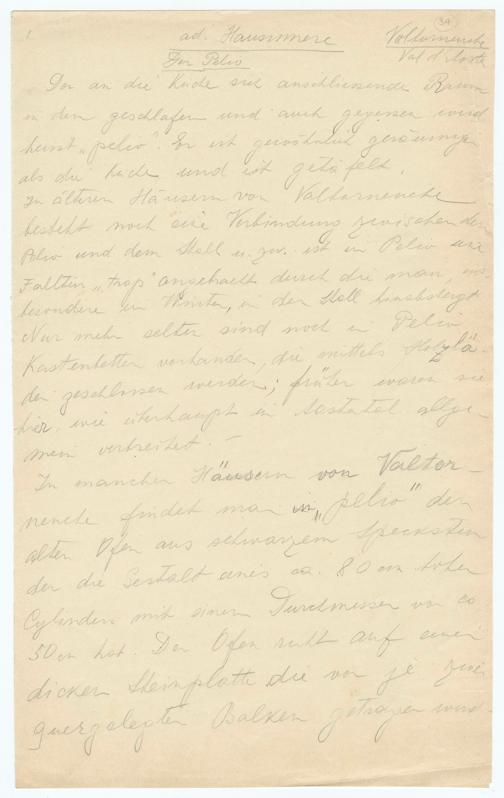 1
34
ad. Hausinnere
Valtornenche
Der Pelio
Val d'Aosta
Der an die Küche sich anschliessende Raum
in dem geschlafen und auch gegessen wird
heisst „pelio". Er ist gewöhnlich geräumiger
als die Küche und ist getäfelt.
In älteren Häusern von Valtornenche
besteht noch eine Verbindung zwischen dem
Pelio und dem Stall u. zw. ist im Pelio eine
Falltür „trap" angebracht durch die man, ins
besondere im Winter, in den Stall hinabsteigt.
Nur mehr selten sind noch in Pelio
Kastenbetten vorhanden, die mittels Holzlä-
den geschlossen werden; früher waren sie
hier wie überhaupt im Aostatal allge-
mein verbreitet. —
In manchen Häusern von Valtor-
nenche findet man in „pelio" den
alten Ofen aus schwarzem Speckstein
der die Gestalt eines ca. 80 cm hohen
Cylinders mit einem Durchmesser von ca
50 cm hat. Der Ofen ruht auf einer
dicken Steinplatte die von je zwei
quergelegten Balken getragen wird.